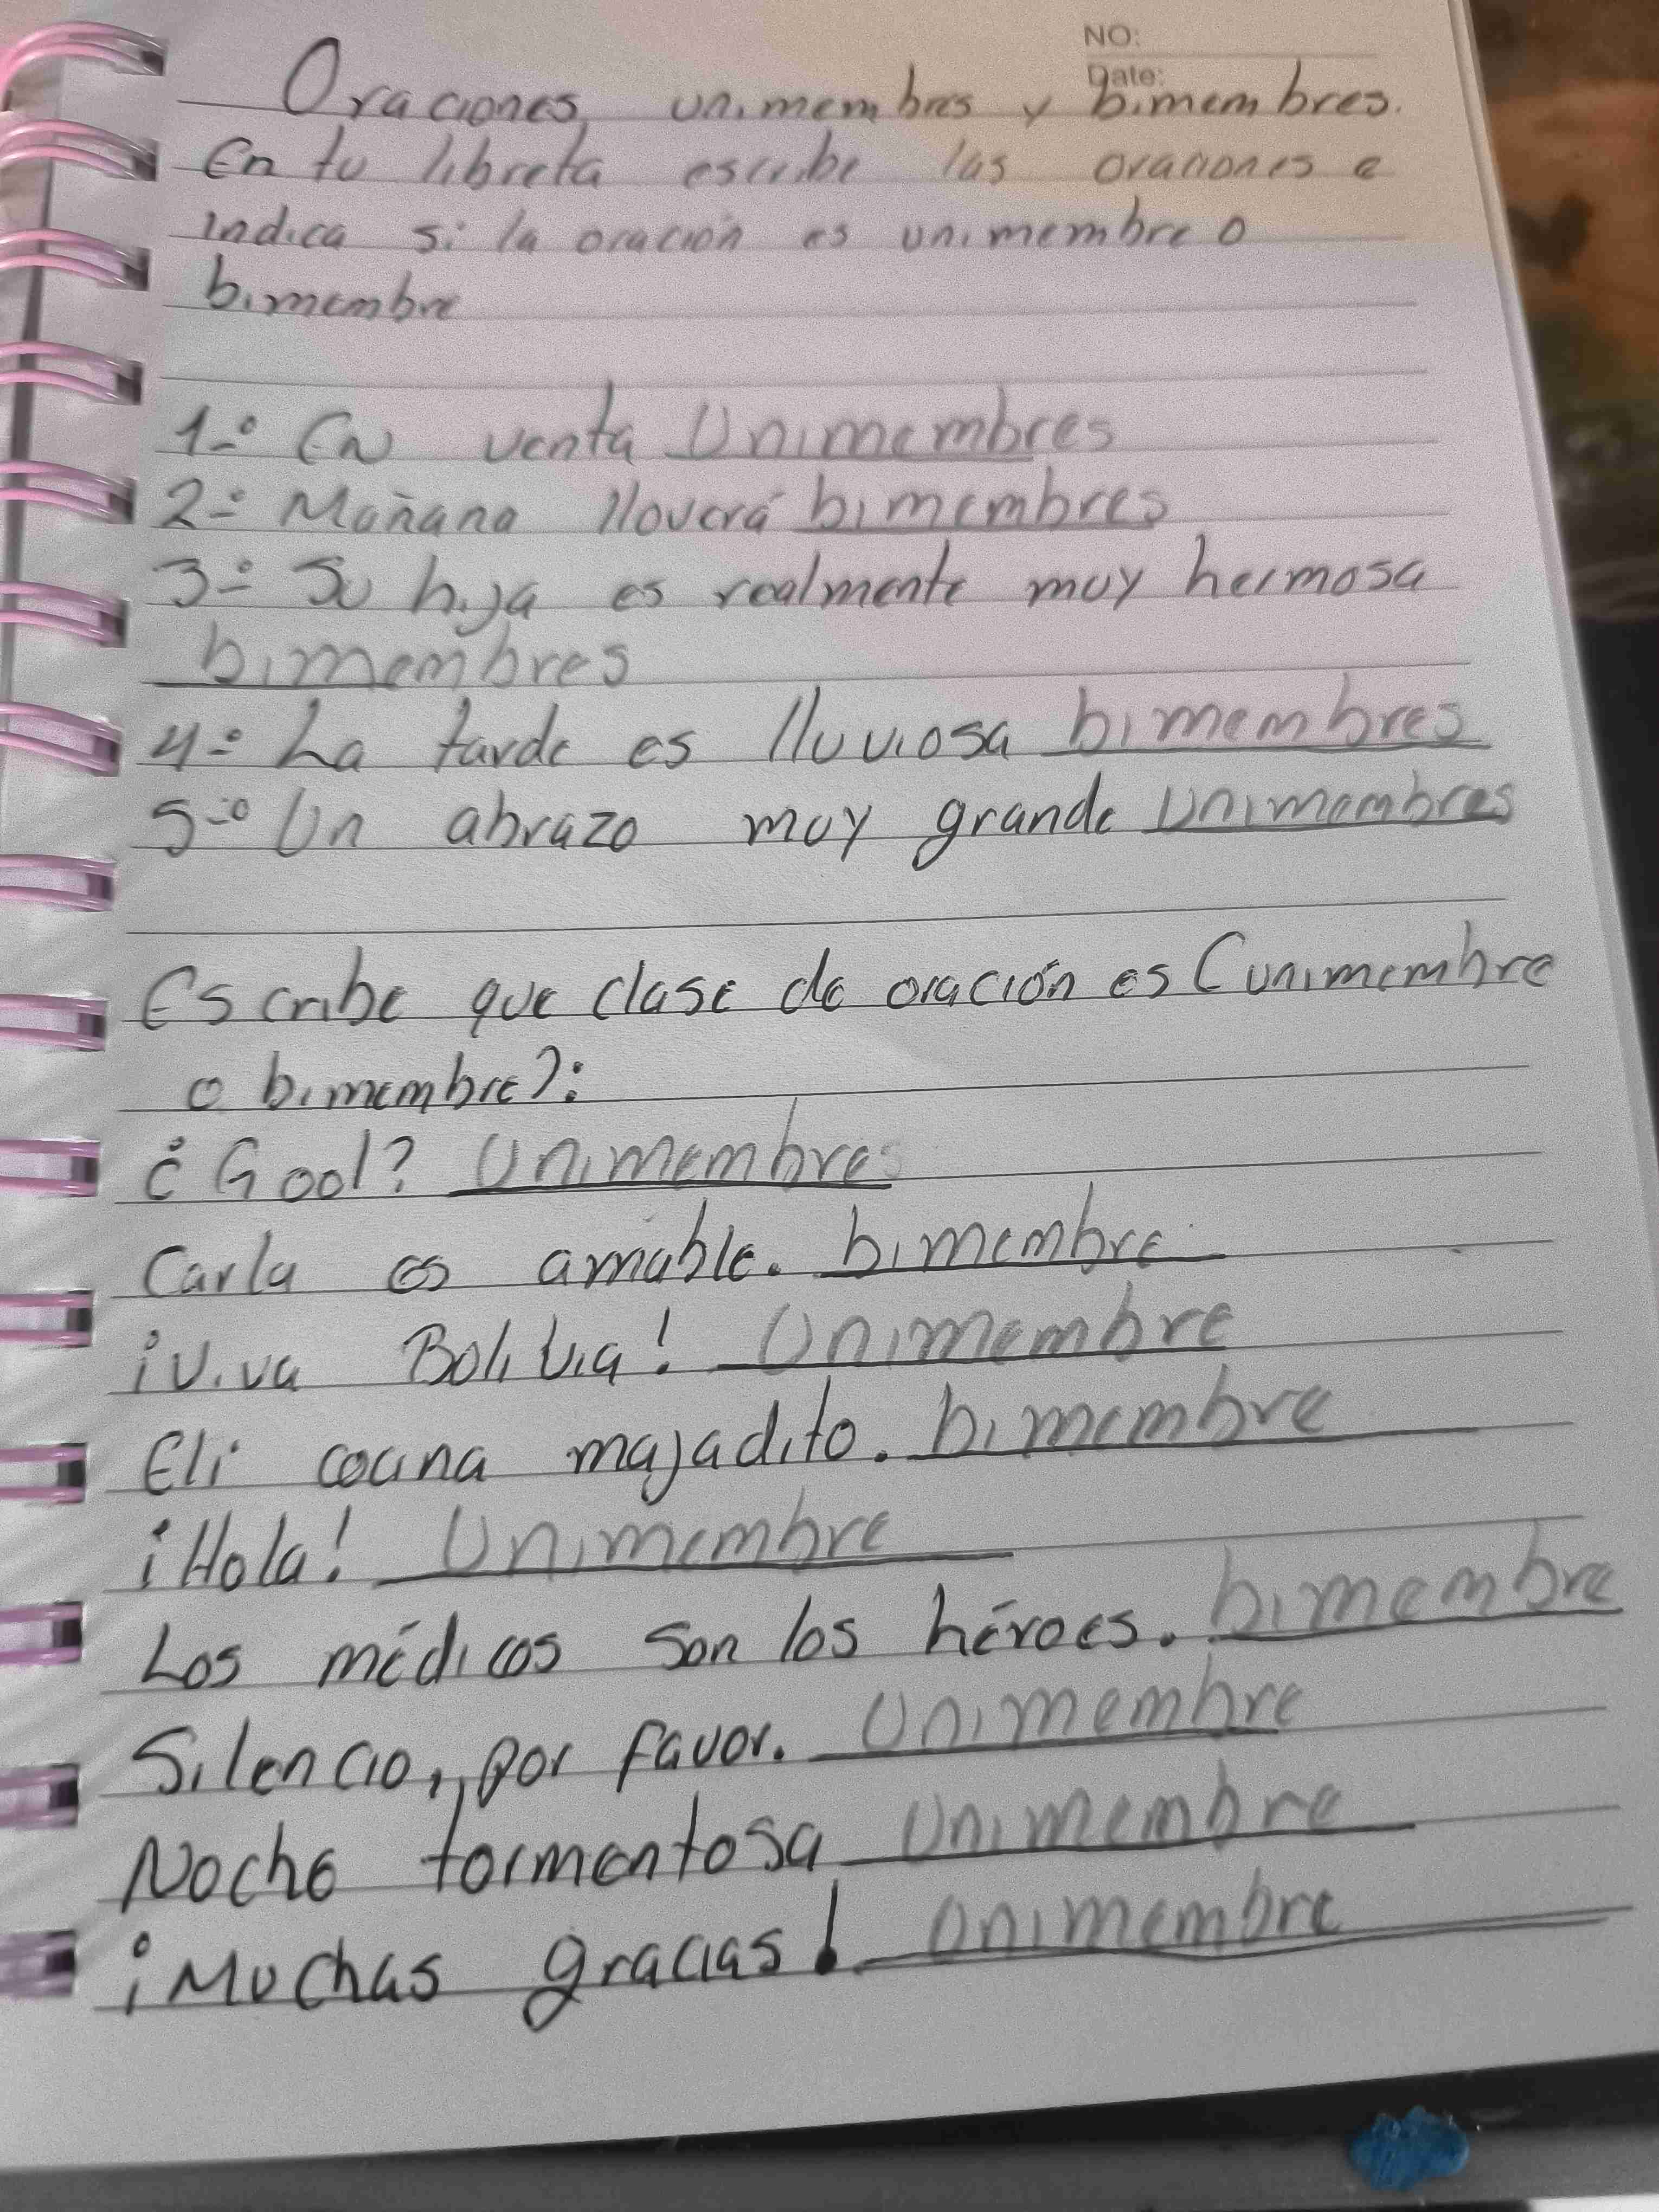 NO:
Date:
Oraciones unimembres y bimembres.
En tu libreta escribe las oraciones e
indica si la oración es unimembre o
bimembre
1-° En venta Unimembres
2-° Mañana lloverá bimembres
3-° Su hija es realmente muy hermosa
bimembres
4-° La tarde es lluviosa bimembres
5-° Un abrazo muy grande Unimembres
Escribe que clase de oración es (unimembre
o bimembre):
¿Gool? Unimembres
Carla es amable. bimembre
¡Viva Bolivia! Unimembre
Eli cocina majadito. bimembre
¡Hola! Unimembre
Los médicos son los héroes. bimembre
Silencio, por favor. Unimembre
Noche tormentosa Unimembre
¡Muchas gracias! Unimembre